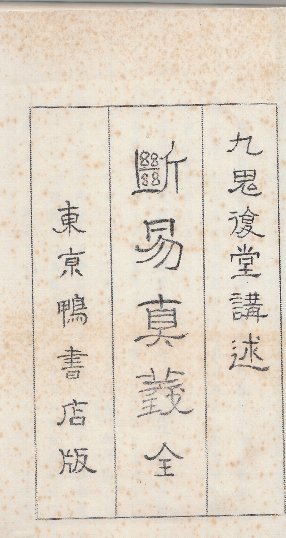 九鬼復堂講述
斷易真義全
東京鴨書店版